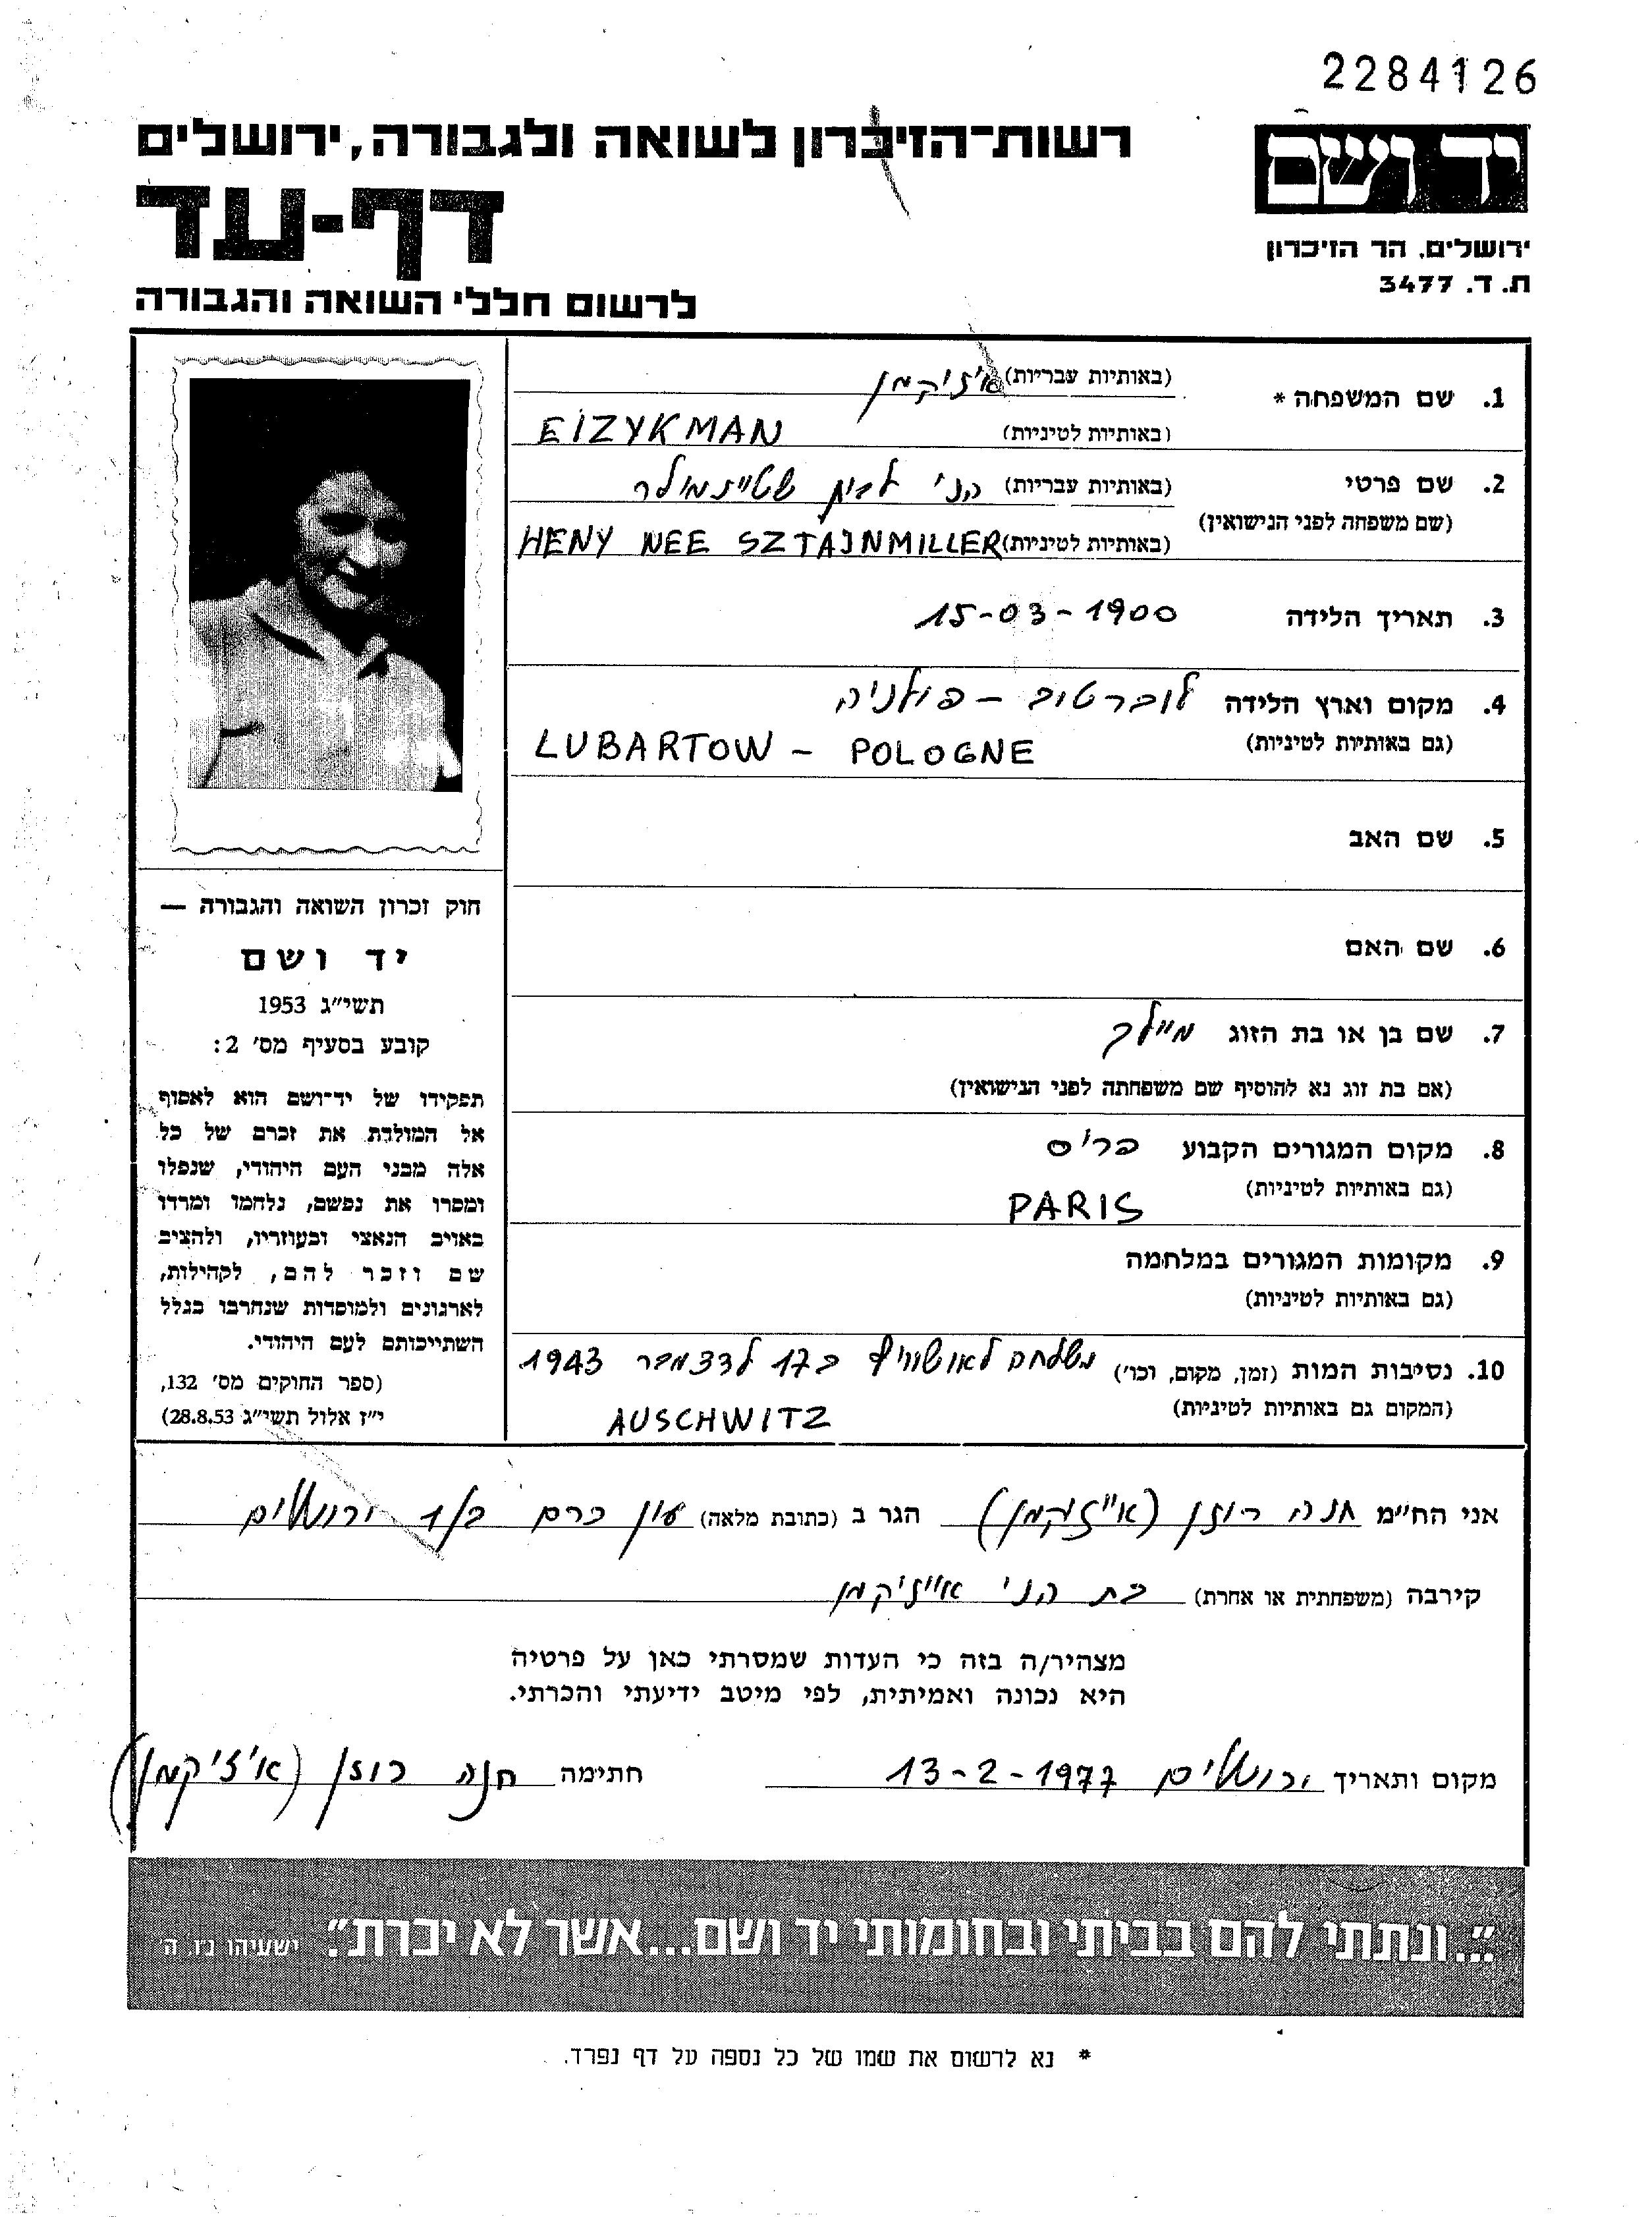 2284126
יד ושם
רשות־הזיכרון לשואה ולגבורה, ירושלים
דף-עד
ירושלים, הר הזיכרון
ת. ד. 3477
לרשום חללי השואה והגבורה
1. שם המשפחה * (באותיות עבריות) איזיקמן
(באותיות לטיניות) EIZYKMAN
2. שם פרטי (באותיות עבריות) הני לבית שטיינמילר
(שם משפחה לפני הנישואין)
(באותיות לטיניות) HENY NEE SZTAJNMILLER
3. תאריך הלידה 15-03-1900
4. מקום וארץ הלידה לוברטוב - פולניה
(גם באותיות לטיניות) LUBARTOW - POLOGNE
5. שם האב
6. שם האם
7. שם בן או בת הזוג מיילך
(אם בת זוג נא להוסיף שם משפחתה לפני הנישואין)
8. מקום המגורים הקבוע פריס
(גם באותיות לטיניות) PARIS
9. מקומות המגורים במלחמה
(גם באותיות לטיניות)
10. נסיבות המות (זמן, מקום, וכו') נשלחה לאושוויץ ב 17 לדצמבר 1943
(המקום גם באותיות לטיניות) AUSCHWITZ
חוק זכרון השואה והגבורה —
יד ושם
תשי״ג 1953
קובע בסעיף מס׳ 2:
תפקידו של יד־ושם הוא לאסוף
אל המולדת את זכרם של כל
אלה מבני העם היהודי, שנפלו
ומסרו את נפשם, נלחמו ומרדו
באויב הנאצי ובעוזריו, ולהציב
שם וזכר להם, לקהילות,
לארגונים ולמוסדות שנחרבו בגלל
השתייכותם לעם היהודי.
(ספר החוקים מס׳ 132,
י״ז אלול תשי״ג 28.8.53)
אני הח״מ חנה רוזן (אייזיקמן) הגר ב (כתובת מלאה) עין כרם ב/1 ירושלים
קירבה (משפחתית או אחרת) בת הני אייזיקמן
מצהיר/ה בזה כי העדות שמסרתי כאן על פרטיה
היא נכונה ואמיתית, לפי מיטב ידיעתי והכרתי.
מקום ותאריך ירושלים 13-2-1977 חתימה חנה רוזן (איזיקמן)
״...ונתתי להם בביתי ובחומותי יד ושם...אשר לא יכרת״. ישעיהו נ״ו, ה
* נא לרשום את שמו של כל נספה על דף נפרד.